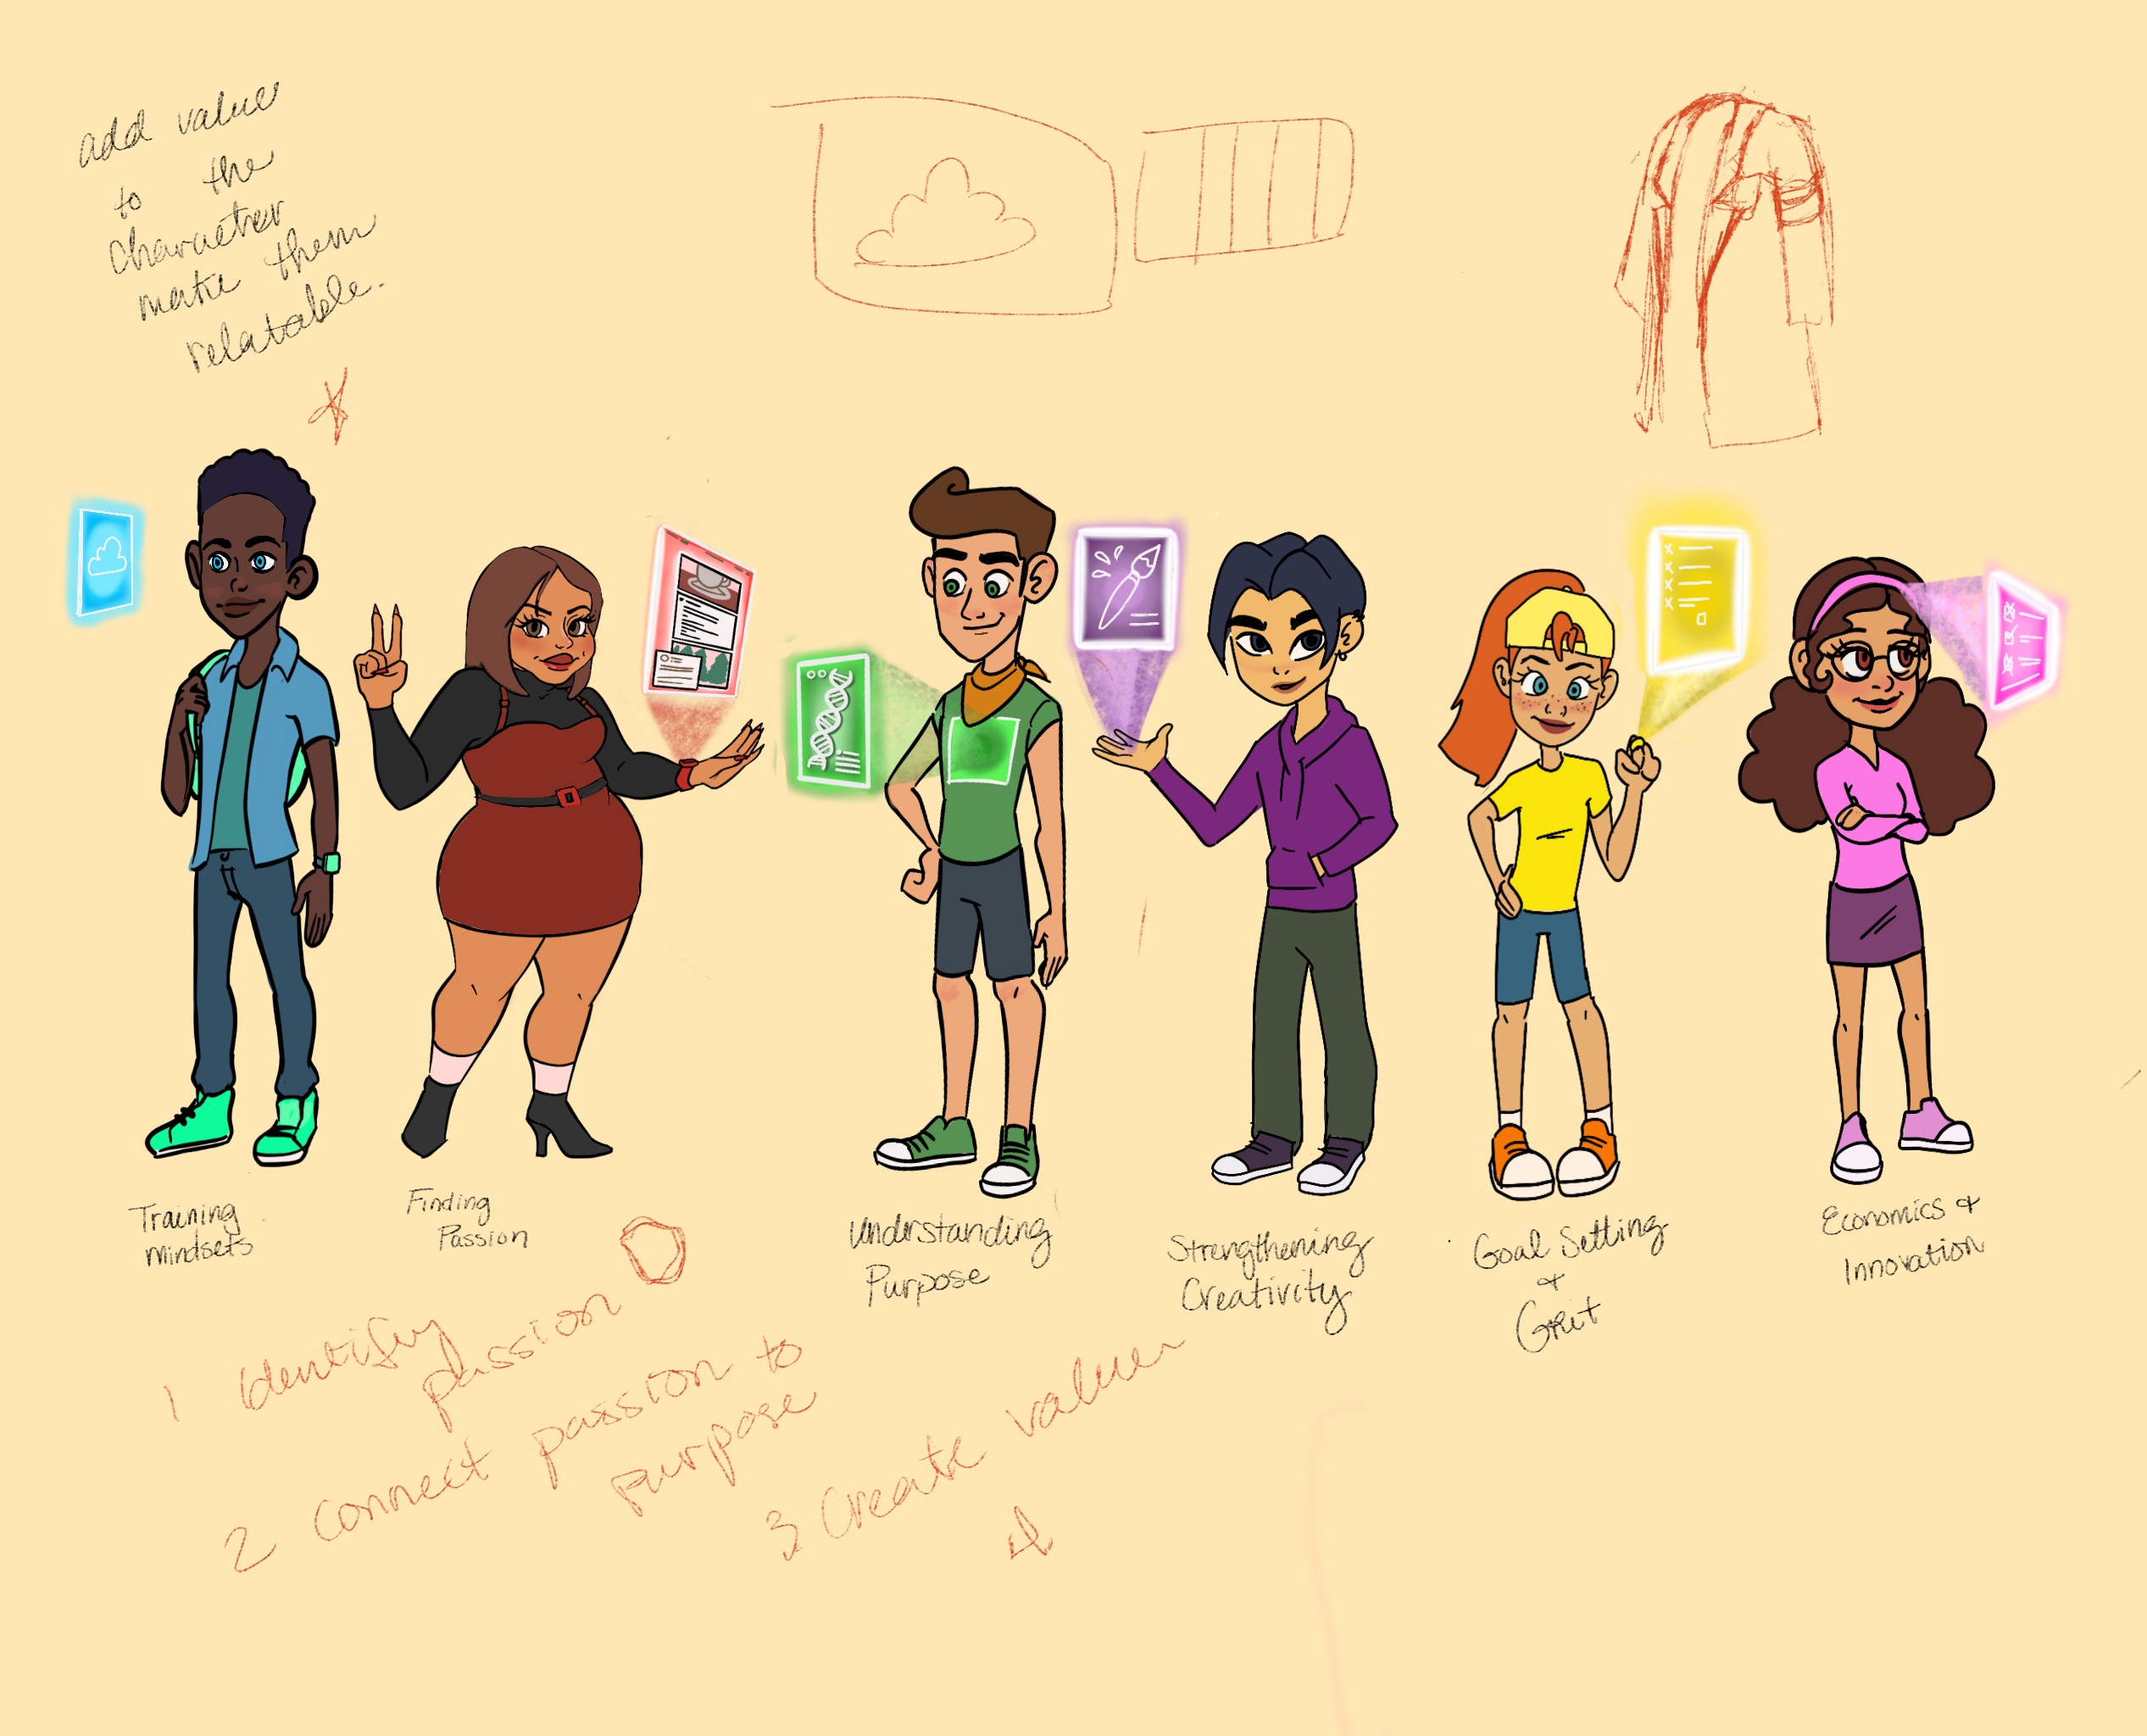 add value
to the
character
make them
relatable.
Training
mindsets
Finding
Passion
Understanding
Purpose
Strengthening
Creativity
Goal Setting
+
Grit
Economics +
Innovation
1 Identify
passion
2 Connect passion to
purpose
3 Create value
4